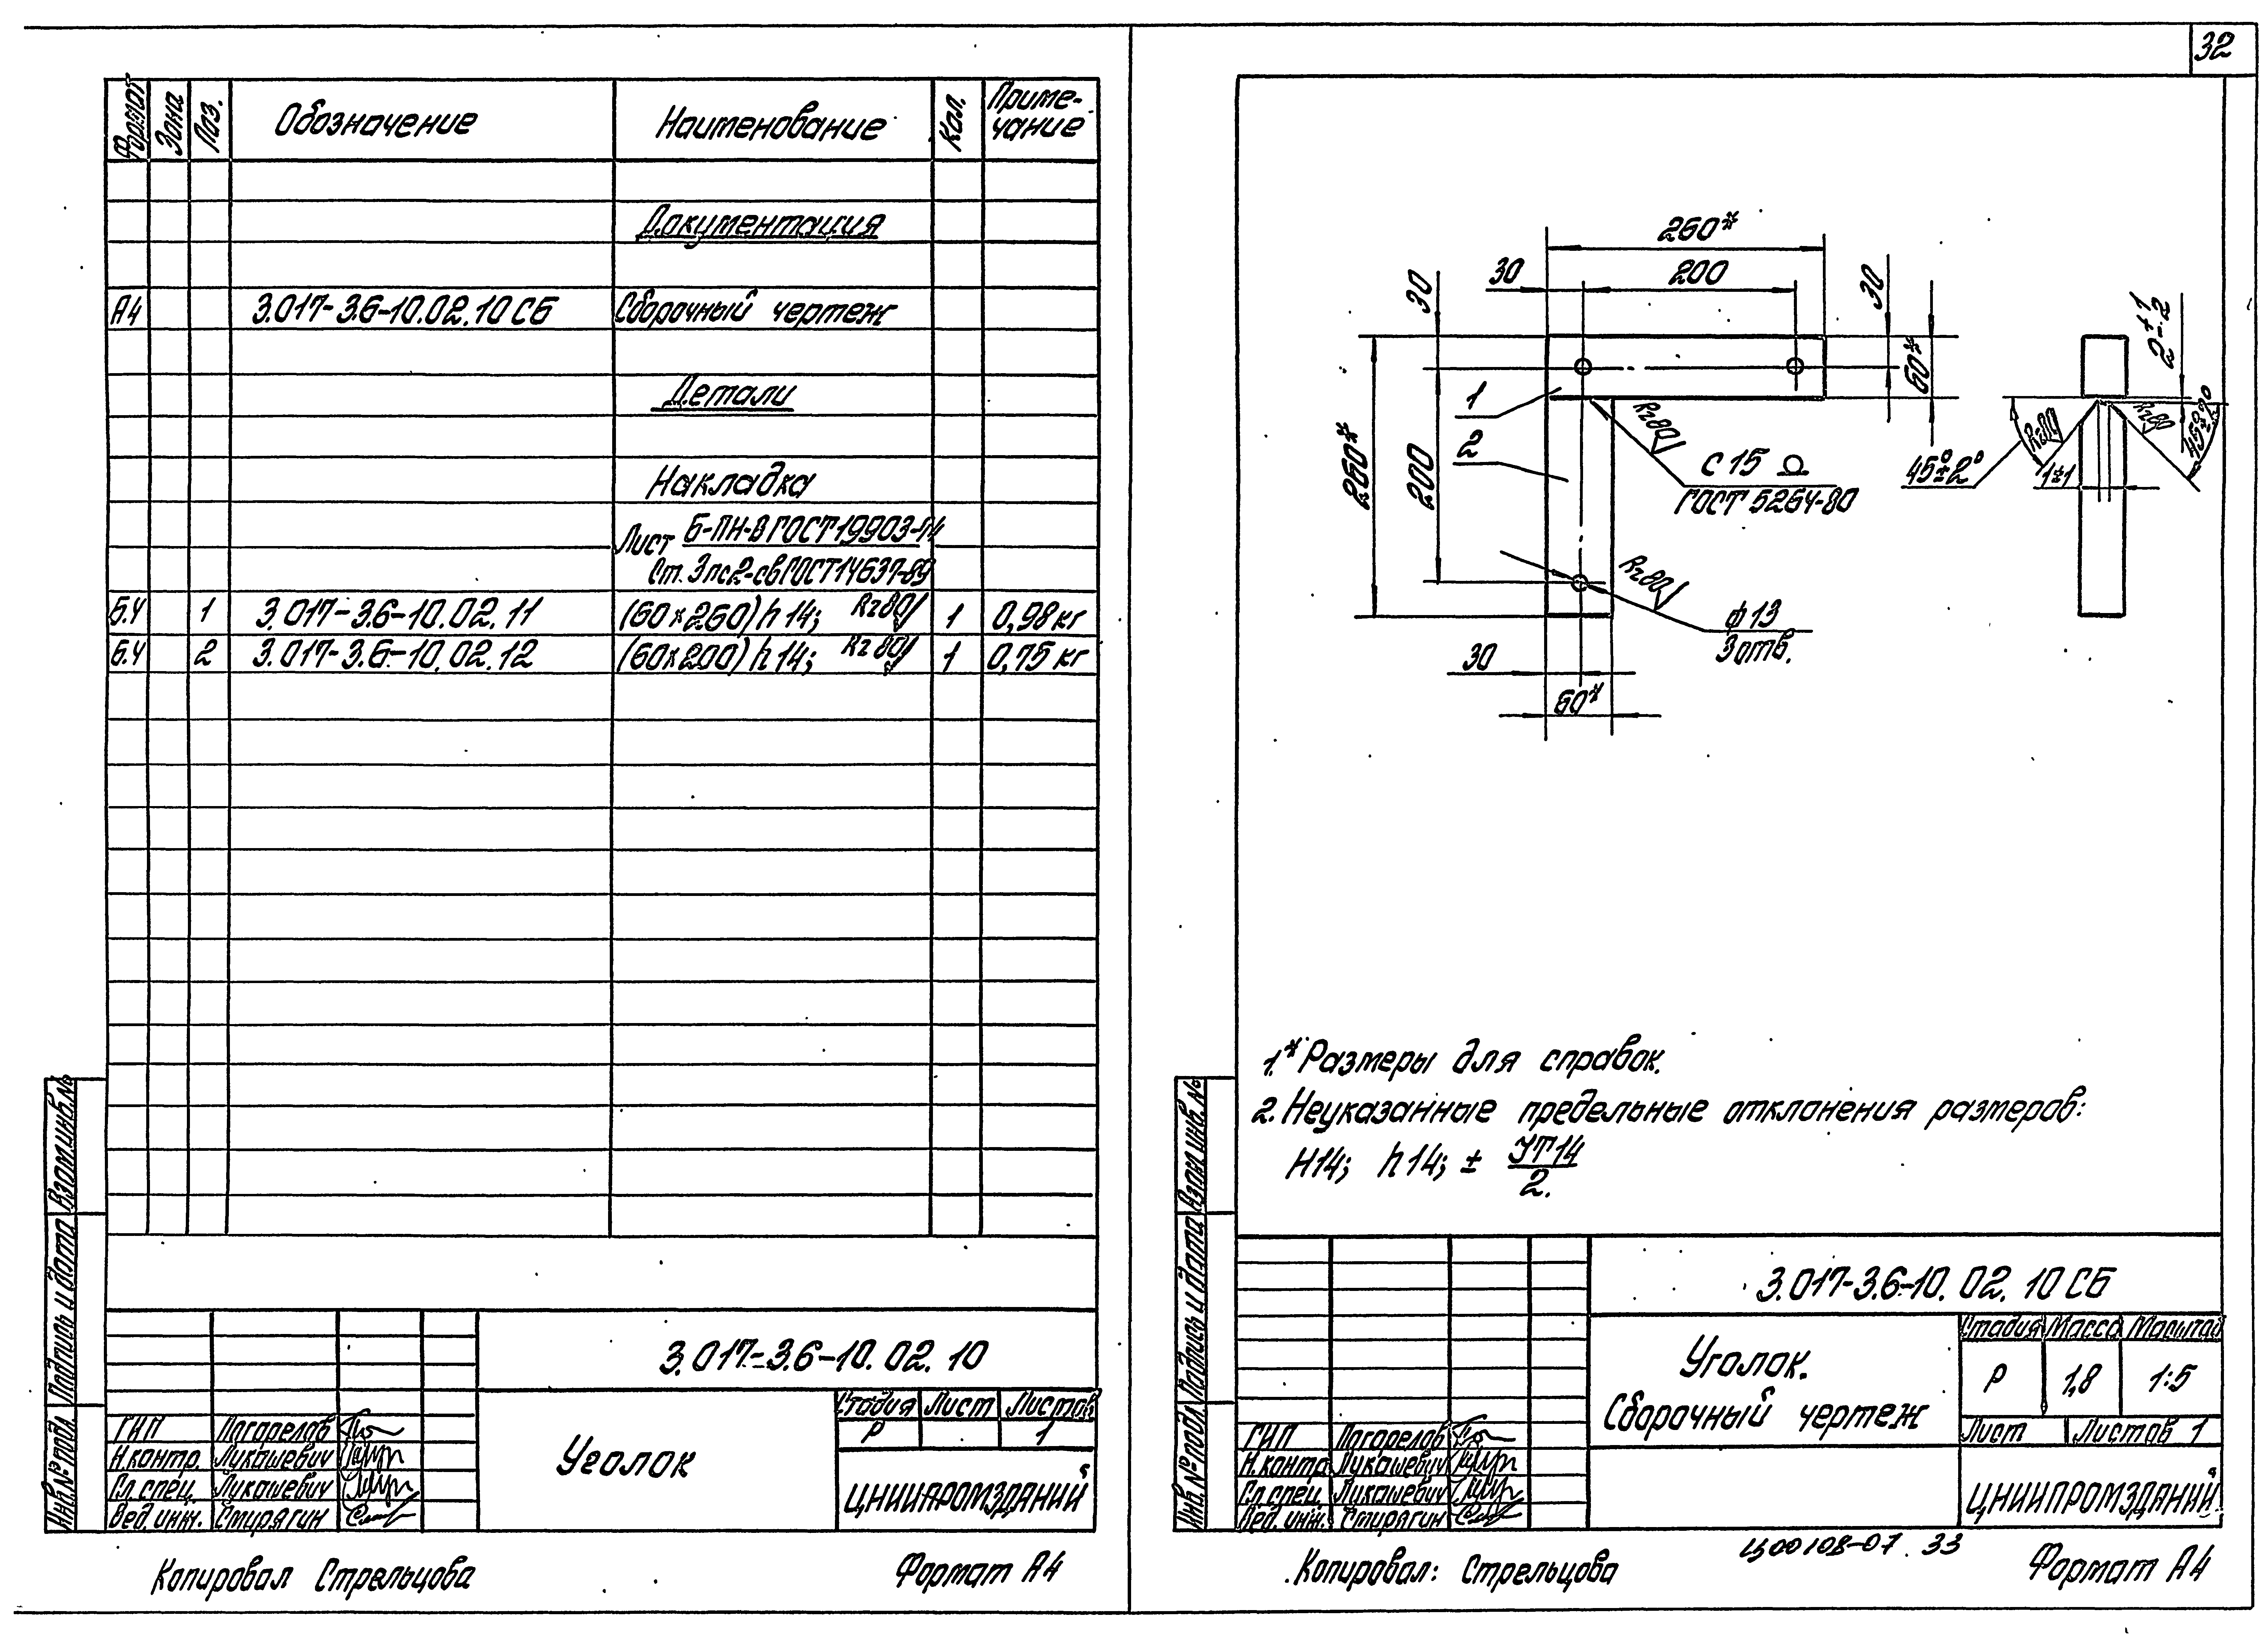 32
Формат Зона Поз. Обозначение Наименование Кол. Приме-
чание
Документация
А4 3.017-3.6-10.02.10 СБ Сборочный чертеж
Детали
Накладка
Лист Б-ПН-В ГОСТ 19903-74
Ст. 3пс2-св ГОСТ 14637-89
Б.Ч 1 3.017-3.6-10.02.11 (60×260) h 14; Rz80 1 0,98 кг
Б.Ч 2 3.017-3.6-10.02.12 (60×200) h 14; Rz80 1 0,75 кг
Взам.инв.№
Подпись и дата
Инв.№ подл.
3.017-3.6-10.02.10
Стадия Лист Листов
Р 1
Уголок
ГИП Погорелов
Н.контр. Лукашевич
Гл.спец. Лукашевич
Вед.инж. Стирягин
ЦНИИПРОМЗДАНИЙ
Копировал Стрельцова Формат А4
260*
30 200
30
30
60*
2±1
2
260*
200
1
2
Rz80
С 15
ГОСТ 5264-80
Rz80
ϕ 13
3 отв.
30
60*
45°±2°
Rz80
1±1
Rz80
45°±2°
1.* Размеры для справок.
2. Неуказанные предельные отклонения размеров:
H14; h14; ± УТ14
2.
Взам.инв.№
Подпись и дата
Инв.№ подл.
3.017-3.6-10.02.10 СБ
Уголок.
Сборочный чертеж
Стадия Масса Масштаб
Р 1,8 1:5
Лист Листов 1
ГИП Погорелов
Н.контр Лукашевич
Гл.спец. Лукашевич
Вед.инж. Стирягин
ЦНИИПРОМЗДАНИЙ
Ц00108-07 33
Копировал: Стрельцова Формат А4